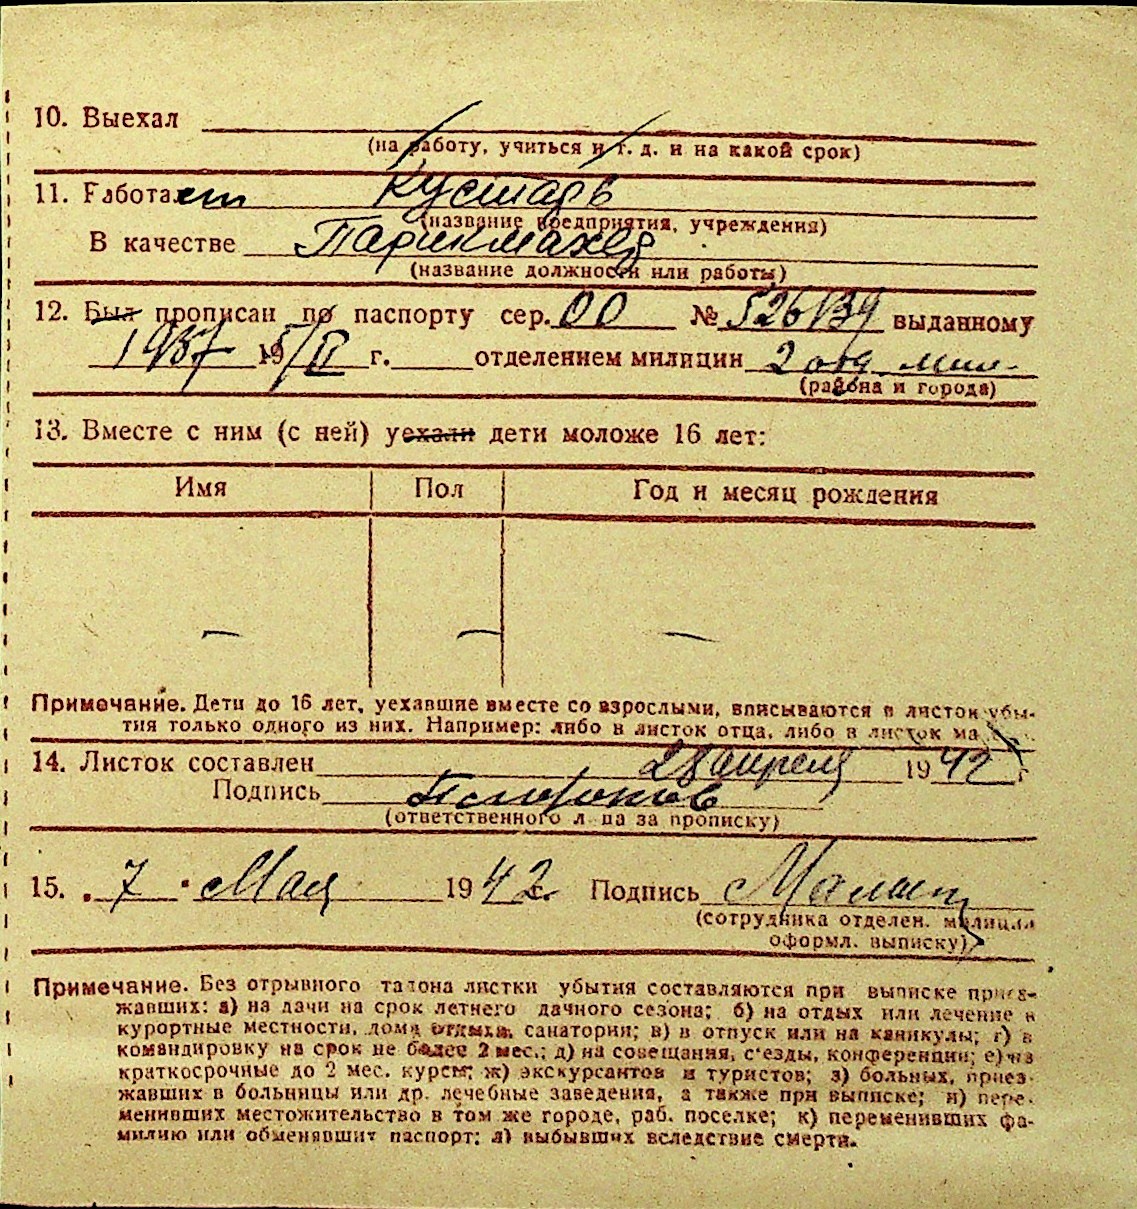 10. Выехал
(на работу, учиться и т. д. и на какой срок)
11. Работает Кустарь
(название предприятия, учреждения)
В качестве Парикмахер
(название должности или работы)
12. Был прописан по паспорту сер. 00 № выданному
195 г. отделением милиции 2 отд мил.
(района и города)
13. Вместе с ним (с ней) уехали дети моложе 16 лет:
Имя Пол Год и месяц рождения
— — —
Примечание. Дети до 16 лет, уехавшие вместе со взрослыми, вписываются в листок убы-
тия только одного из них. Например: либо в листок отца, либо в листок ма
14. Листок составлен 28 апреля 1942 г.
Подпись
(ответственного лица за прописку)
15. „ 7 " Мая 1942 г. Подпись
(сотрудника отделен. милиции
оформл. выписку)
Примечание. Без отрывного талона листки убытия составляются при выписке приез-
жавших: а) на дачи на срок летнего дачного сезона; б) на отдых или лечение в
курортные местности, дома отдыха, санатории; в) в отпуск или на каникулы; г) в
командировку на срок не более 2 мес.; д) на совещания, с'езды, конференции; е) на
краткосрочные до 2 мес. курсы; ж) экскурсантов и туристов; з) больных, приез-
жавших в больницы или др. лечебные заведения, а также при выписке; и) пере-
менивших местожительство в том же городе, раб. поселке; к) переменивших фа-
милию или обменявших паспорт; л) выбывших вследствие смерти.